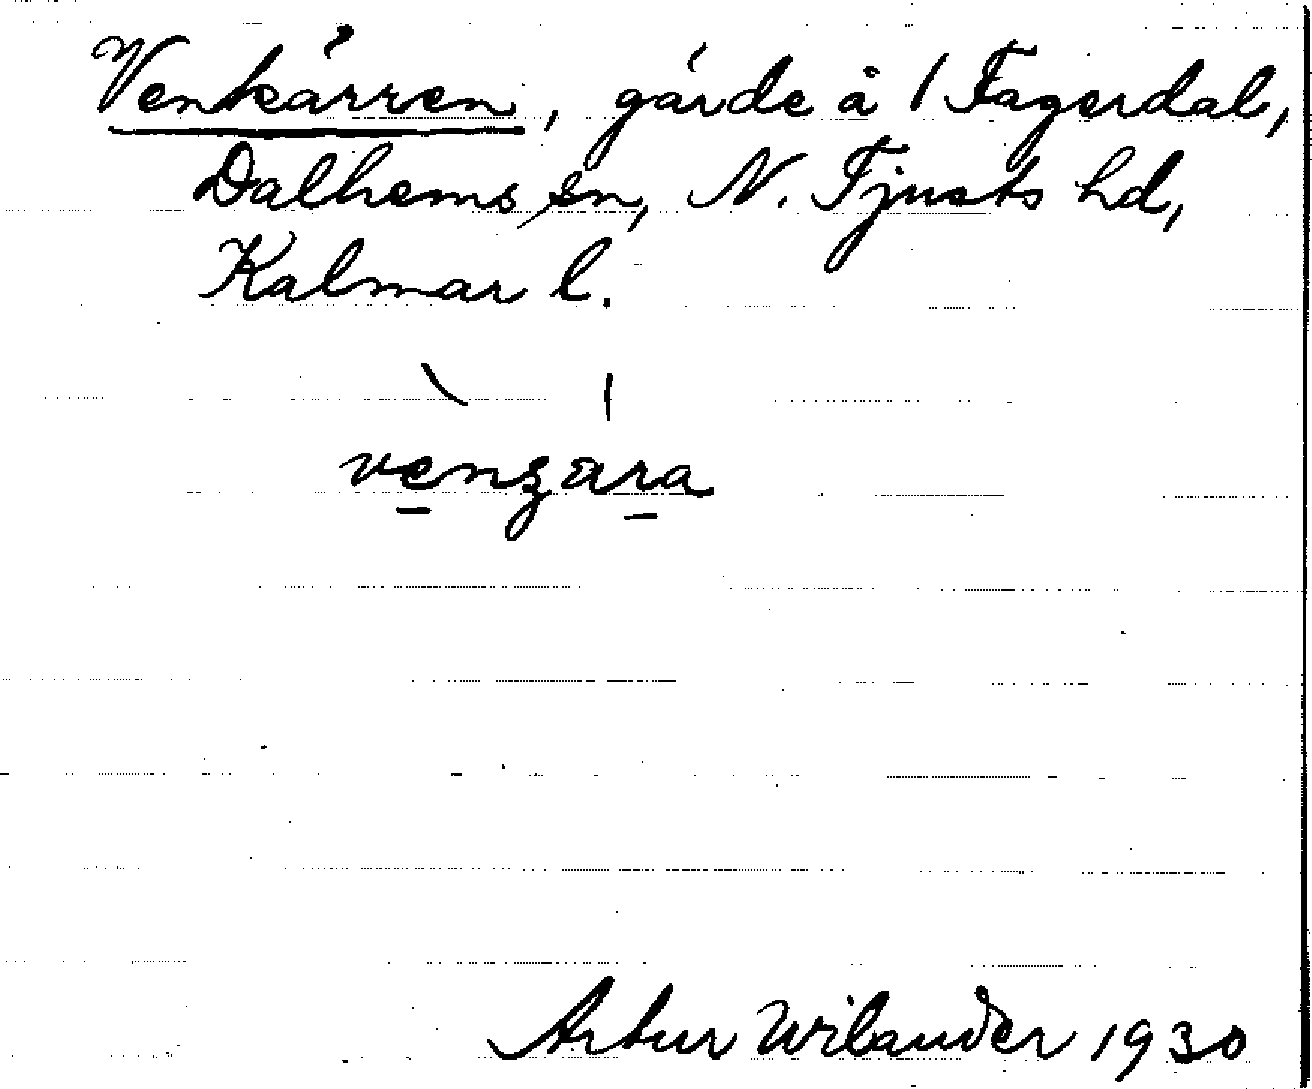 Venkärren, gärde å 1 Fagerdal,
Dalhems sn, N. Tjusts hd,
Kalmar l.
venʒära
Artur Wilander 1930